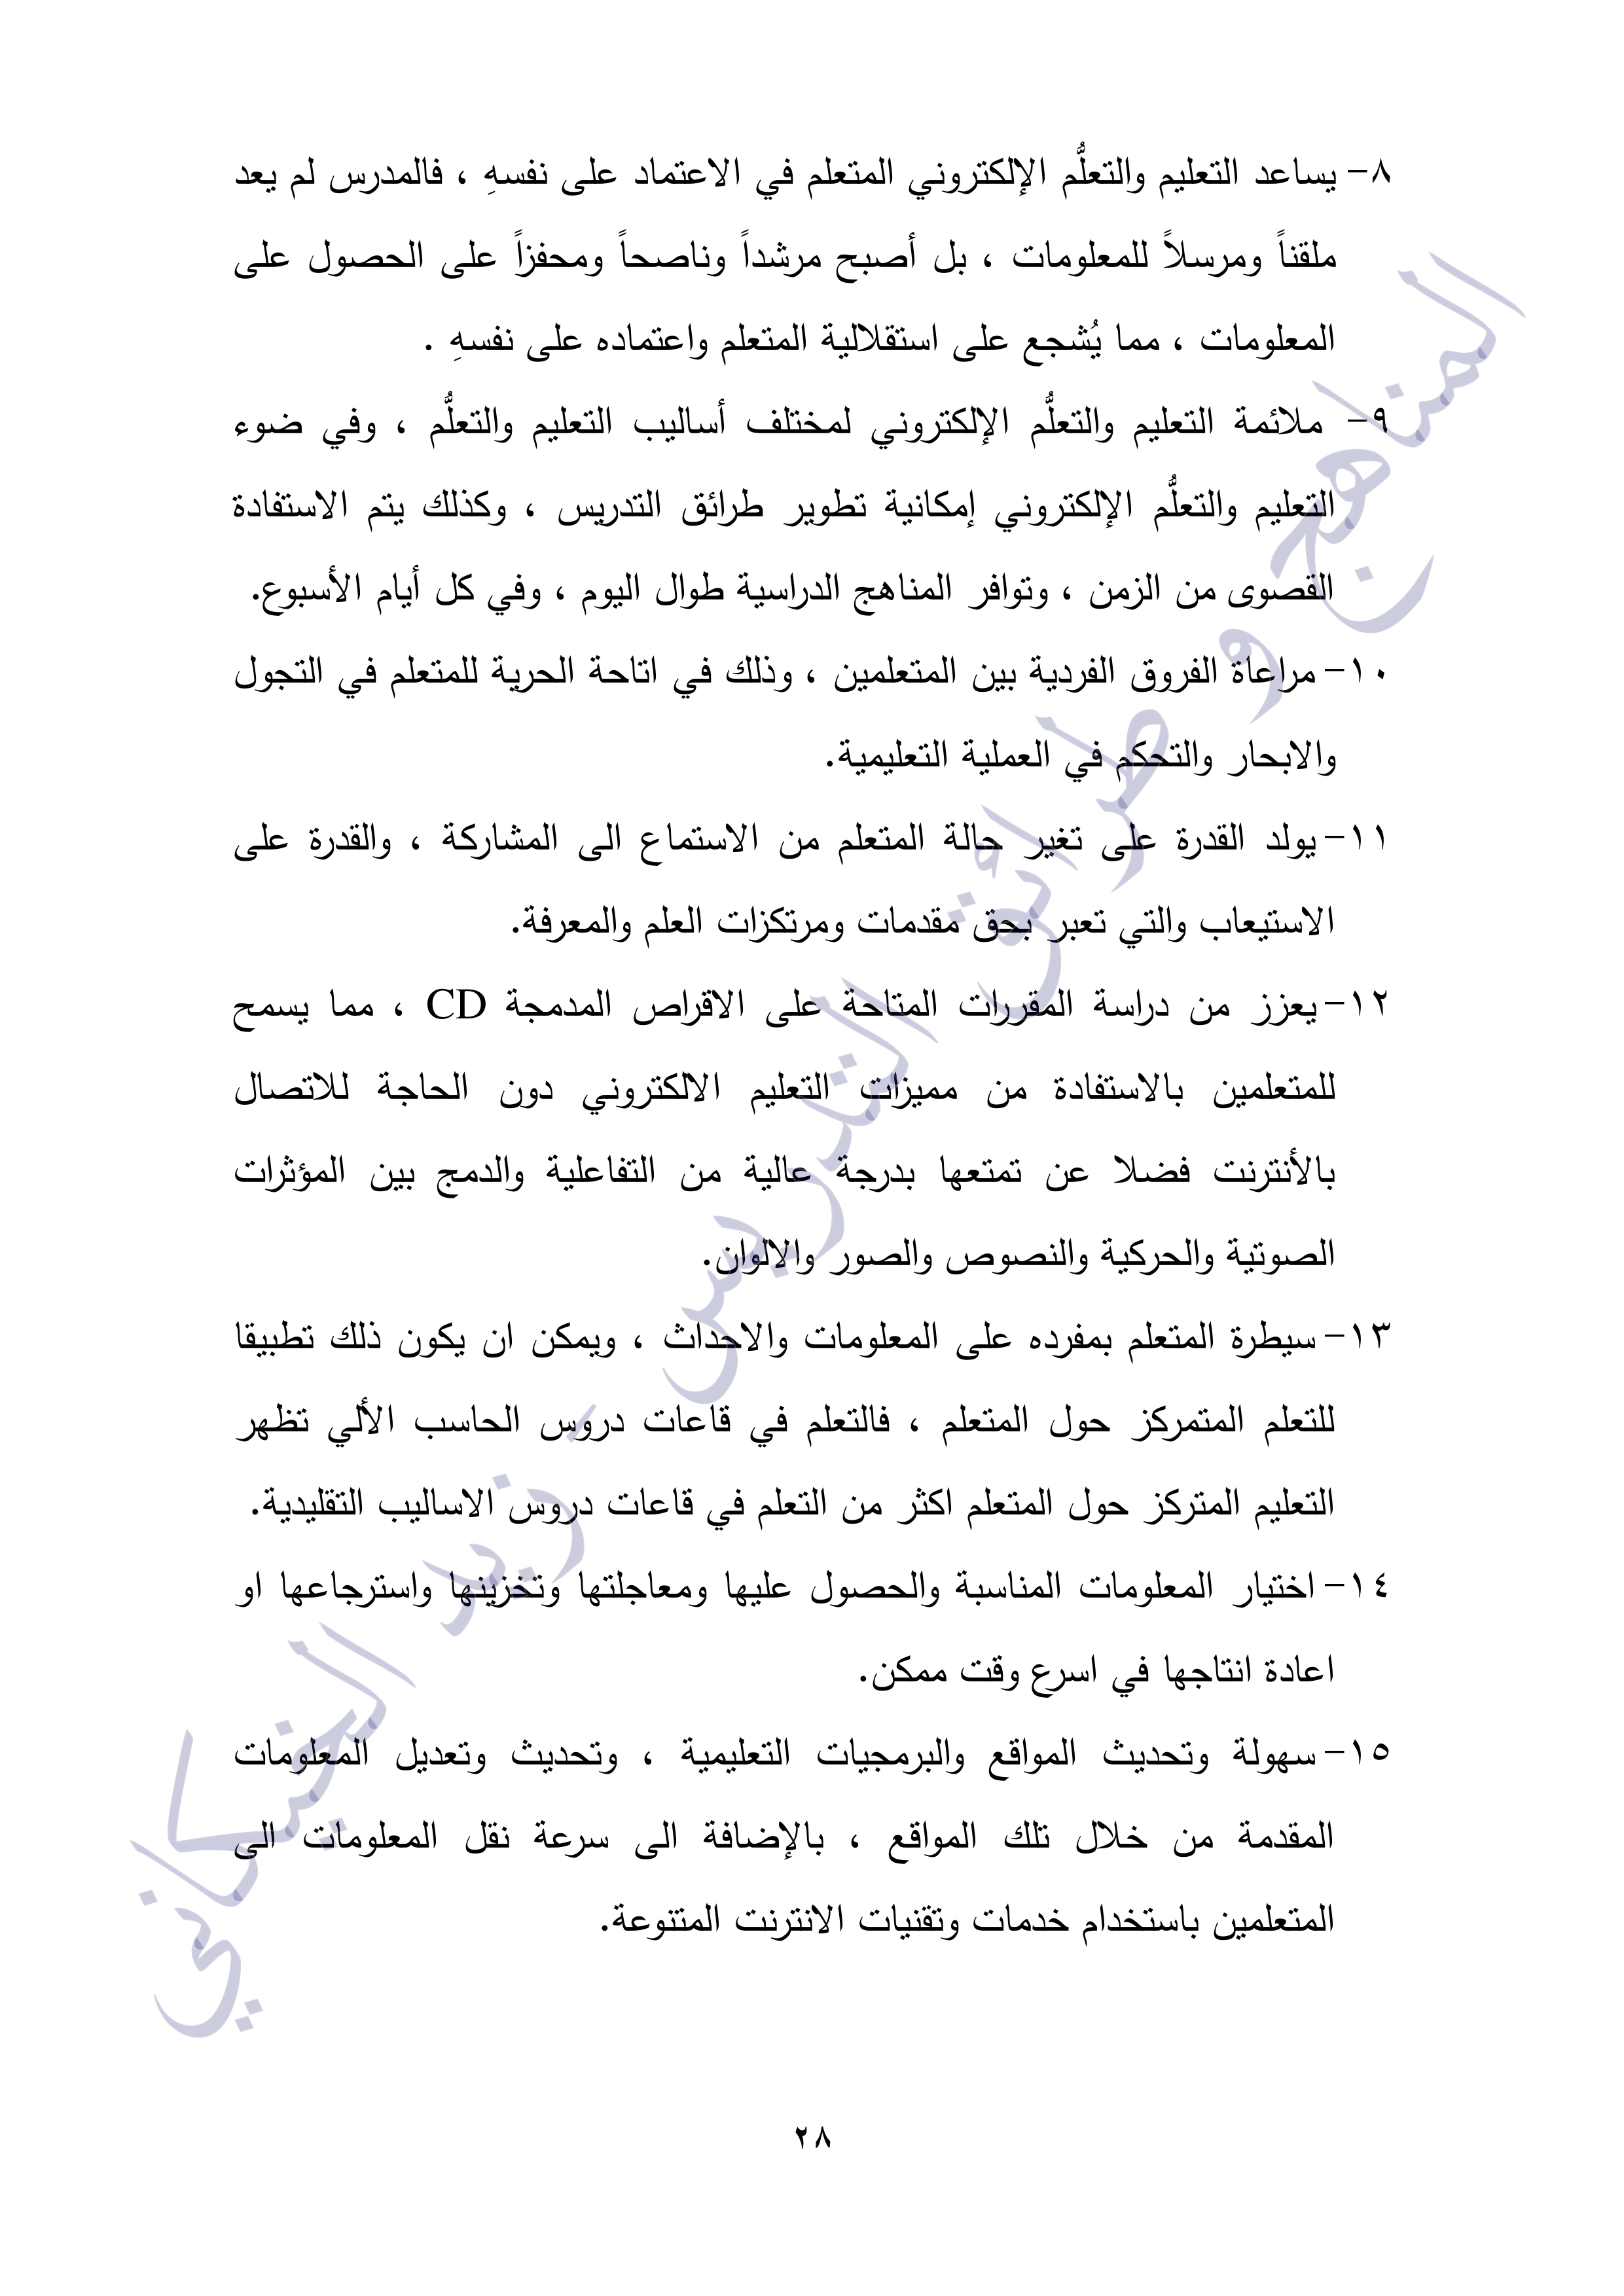 ٨- يساعد التعليم والتعلُّم الإلكتروني المتعلم في الاعتماد على نفسهِ ، فالمدرس لم يعد
ملقناً ومرسلاً للمعلومات ، بل أصبح مرشداً وناصحاً ومحفزاً على الحصول على
المعلومات ، مما يُشجع على استقلالية المتعلم واعتماده على نفسهِ .
٩- ملائمة التعليم والتعلُّم الإلكتروني لمختلف أساليب التعليم والتعلُّم ، وفي ضوء
التعليم والتعلُّم الإلكتروني إمكانية تطوير طرائق التدريس ، وكذلك يتم الاستفادة
القصوى من الزمن ، وتوافر المناهج الدراسية طوال اليوم ، وفي كل أيام الأسبوع.
١٠- مراعاة الفروق الفردية بين المتعلمين ، وذلك في اتاحة الحرية للمتعلم في التجول
والابحار والتحكم في العملية التعليمية.
١١- يولد القدرة على تغير حالة المتعلم من الاستماع الى المشاركة ، والقدرة على
الاستيعاب والتي تعبر بحق مقدمات ومرتكزات العلم والمعرفة.
١٢- يعزز من دراسة المقررات المتاحة على الاقراص المدمجة CD ، مما يسمح
للمتعلمين بالاستفادة من مميزات التعليم الالكتروني دون الحاجة للاتصال
بالأنترنت فضلا عن تمتعها بدرجة عالية من التفاعلية والدمج بين المؤثرات
الصوتية والحركية والنصوص والصور والالوان.
١٣- سيطرة المتعلم بمفرده على المعلومات والاحداث ، ويمكن ان يكون ذلك تطبيقا
للتعلم المتمركز حول المتعلم ، فالتعلم في قاعات دروس الحاسب الألي تظهر
التعليم المتركز حول المتعلم اكثر من التعلم في قاعات دروس الاساليب التقليدية.
١٤- اختيار المعلومات المناسبة والحصول عليها ومعاجلتها وتخزينها واسترجاعها او
اعادة انتاجها في اسرع وقت ممكن.
١٥- سهولة وتحديث المواقع والبرمجيات التعليمية ، وتحديث وتعديل المعلومات
المقدمة من خلال تلك المواقع ، بالإضافة الى سرعة نقل المعلومات الى
المتعلمين باستخدام خدمات وتقنيات الانترنت المتنوعة.
المناهج و طرائق التدريس - زيد الخيكاني
٢٨